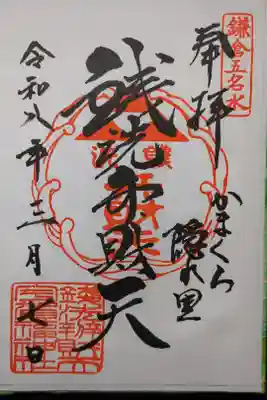 鎌倉五名水
奉拝
かまくら
隠れ里
銭洗弁財天
令和八年三月
七日